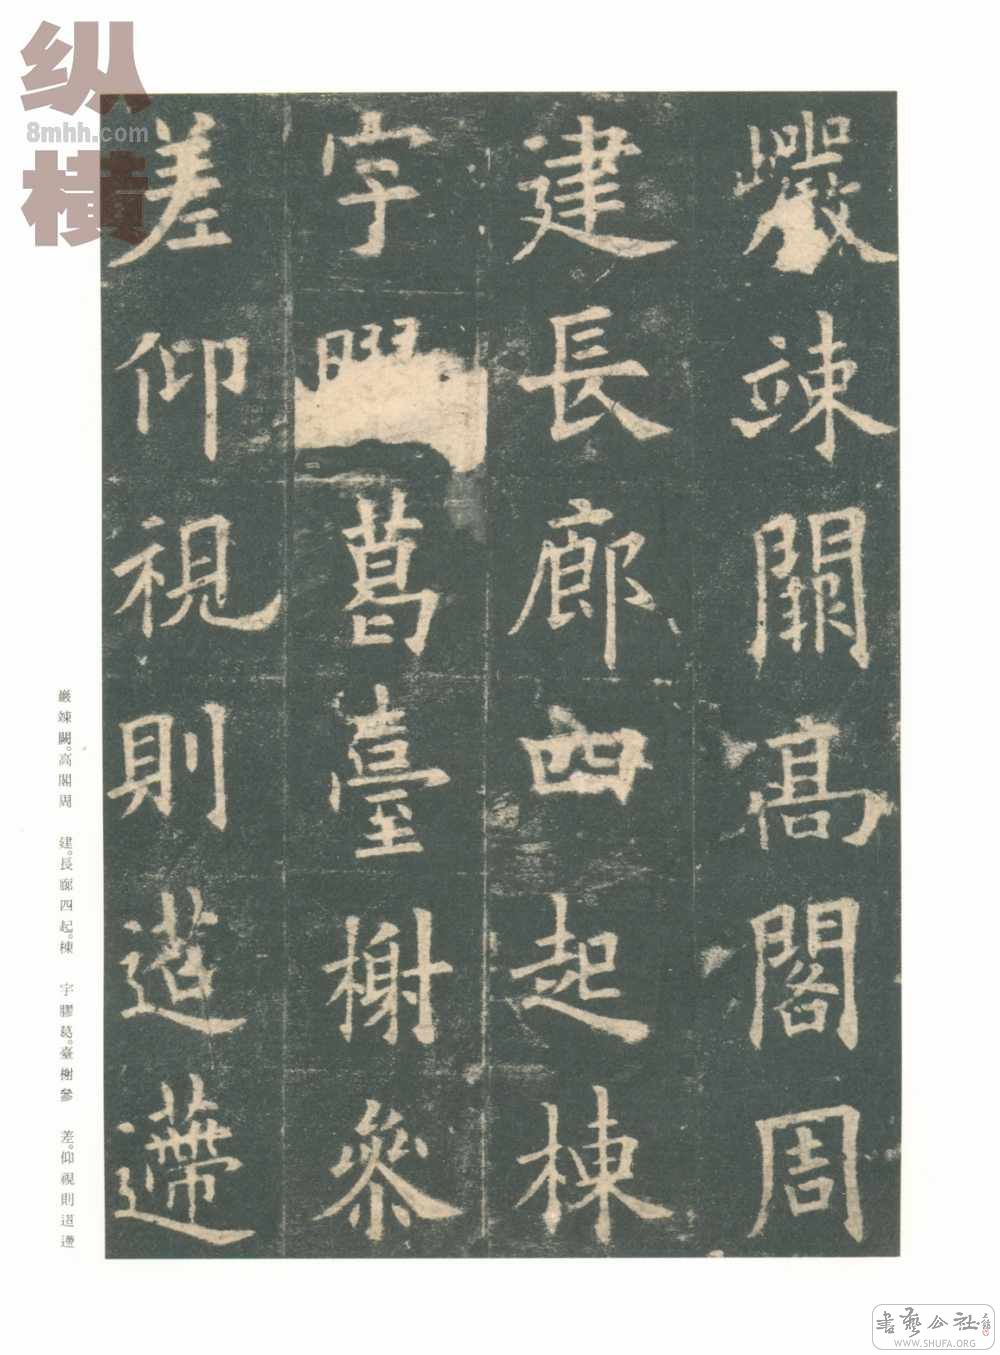 巖竦闕高閣周
建長廊四起棟
宇膠葛臺榭參
差仰視則迢遰
巖竦闕。高閣周 建。長廊四起。棟 宇膠葛。臺榭參 差。仰視則迢遰
纵横
8mhh.com
書藝公社
WWW.SHUFA.ORG